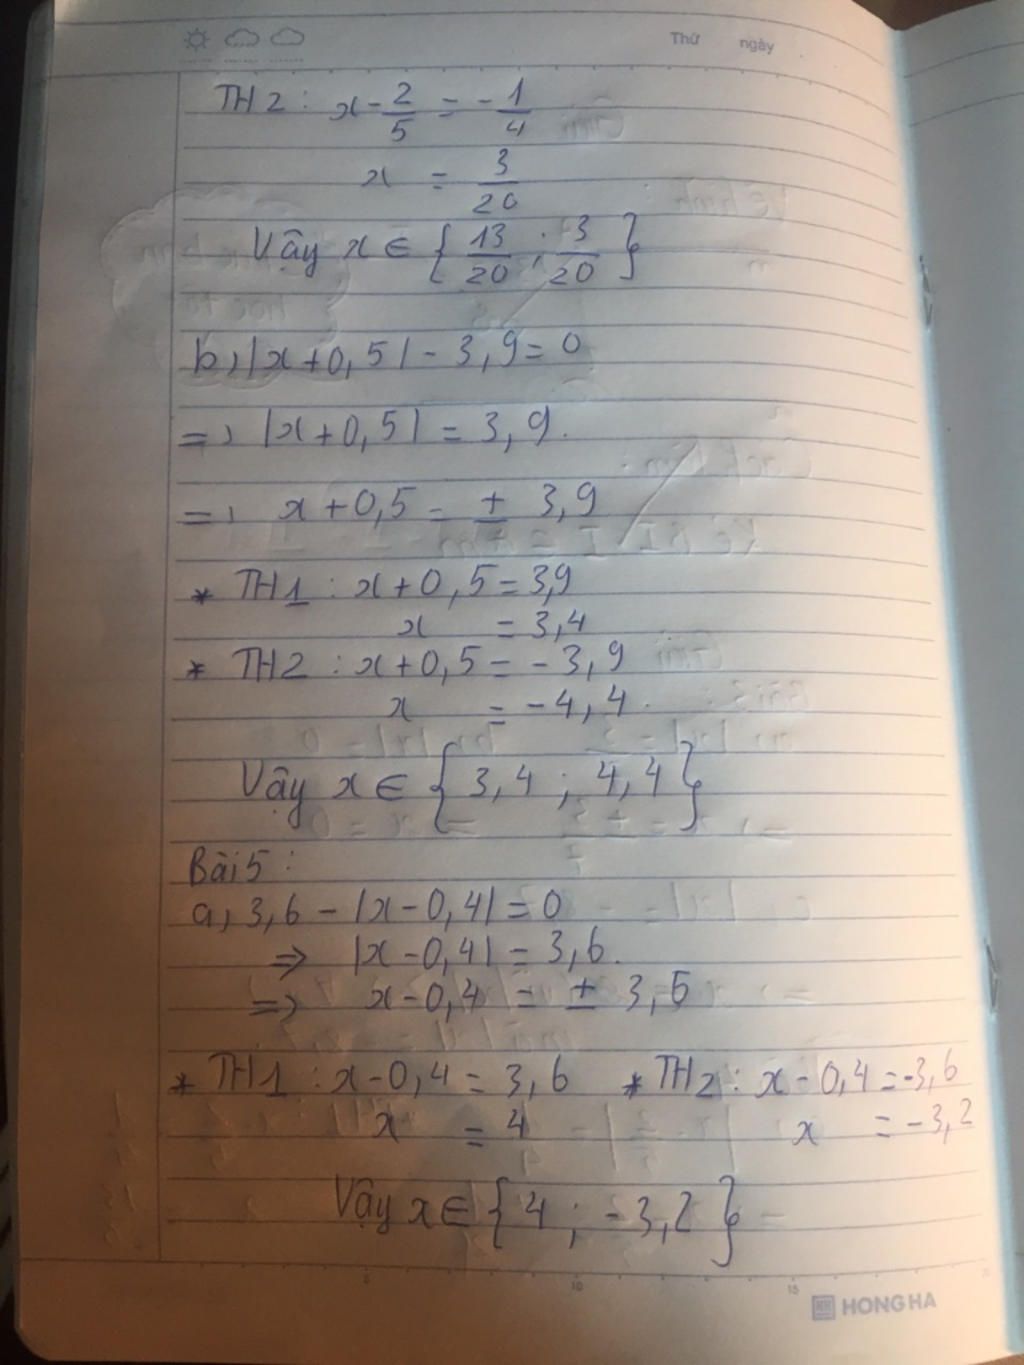 Thứ ngày
TH2: x - 2/5 = - 1/4
x = 3/20
Vậy x ∈ { 13/20 ; 3/20 }
b, |x + 0,5| - 3,9 = 0
=> |x + 0,5| = 3,9.
=> x + 0,5 = ± 3,9
* TH1 : x + 0,5 = 3,9
x = 3,4
* TH2 : x + 0,5 = - 3,9
x = - 4,4.
Vậy x ∈ { 3,4 ; 4,4 }
Bài 5 :
a, 3,6 - |x - 0,4| = 0
=> |x - 0,4| = 3,6.
=> x - 0,4 = ± 3,6
* TH1 : x - 0,4 = 3,6 * TH2 : x - 0,4 = -3,6
x = 4 x = - 3,2
Vậy x ∈ { 4 ; - 3,2 }
5 10 15
HONG HA